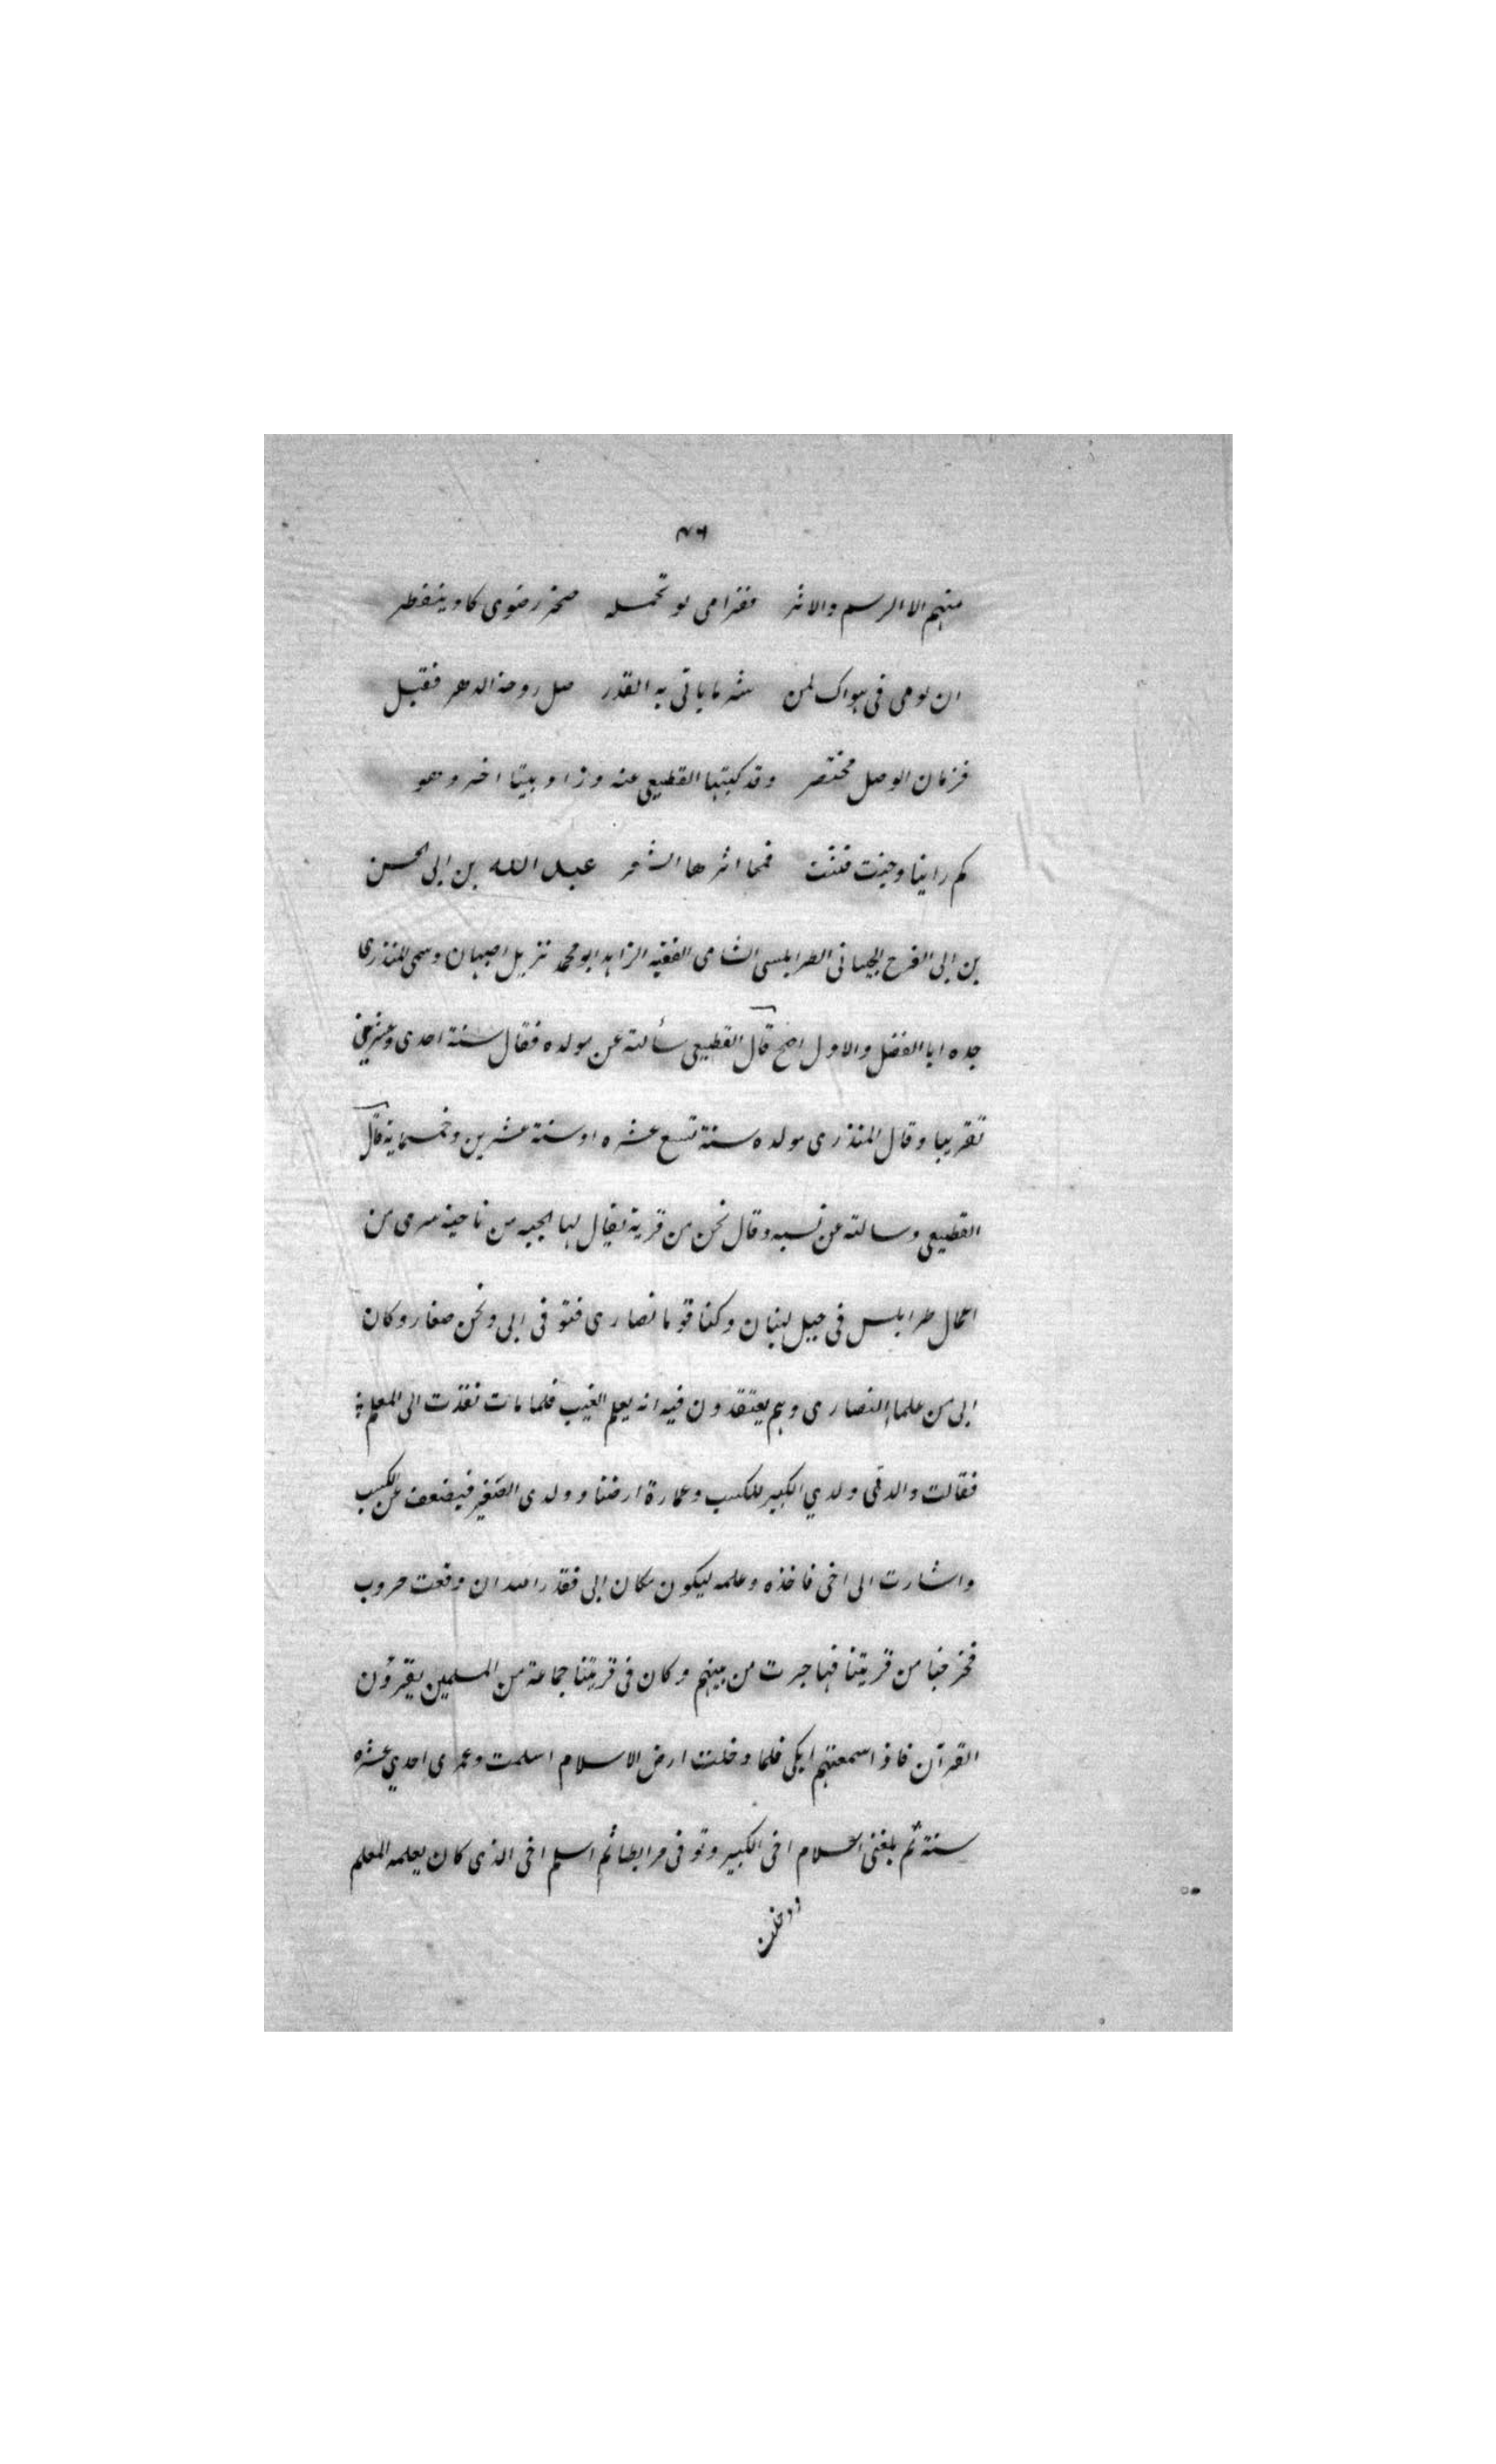 ٧٦
منهم الا الرسم والاثر فغرامى لو تحمله صخر رضوى كاد ينفطر
ان لومى فى هواك لمن شر ما ياتى به القدر صل روحنا الدهر فقبل
فزمان الوصل مختصر وقد كتبها القطيعى عنه وزاد بيتا اخر وهو
كم راينا وجنت فتنت فمحا اثرها الشعر عبد الله بن ابى الحسن
بن ابى الفرج الجبانى الطرابلسى الشامى الفقيه الزاهد ابو محمد نزيل اصبهان وسمى المنذرى
جده ابا الفضل والاول اصح قال القطيعى سألته عن مولده فقال سنة احدى وعشرين
تقريبا وقال المنذرى مولده سنة تسع عشره او سنة عشرين وخمسماية قال
القطيعى وسالته عن نسبه وقال نحن من قرية يقال لها الجبه من ناحية سرى من
اعمال طرابلس فى جبل لبنان وكنا قوما نصارى فتوفى ابى ونحن صغار وكان
ابى من علماء النصارى وهم يعتقدون فيه انه يعلم الغيب فلما مات نفذت الى المعلم
فقالت والدتى ولدي الكبير للكسب وعمارة ارضنا وولدى الصغير فيضعف عن الكسب
واشارت الى اخى فاخذه وعلمه ليكون مكان ابى فقدر الله ان وقعت حروب
فخرجنا من قريتنا فهاجرت من بينهم وكان فى قريتنا جماعة من المسلمين يقرؤن
القرآن فاذ اسمعتهم ابكى فلما دخلت ارض الاسلام اسلمت وعمرى احدي عشره
سنة ثم بلغنى اسلام اخى الكبير وتوفى مرابطا ثم اسلم اخى الذى كان يعلمه المعلم
ودخلت